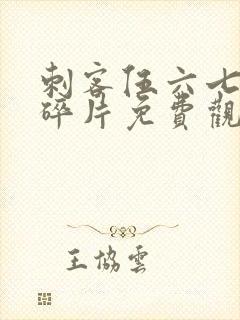 刺客伍六七
碎片免費觀
王協雲